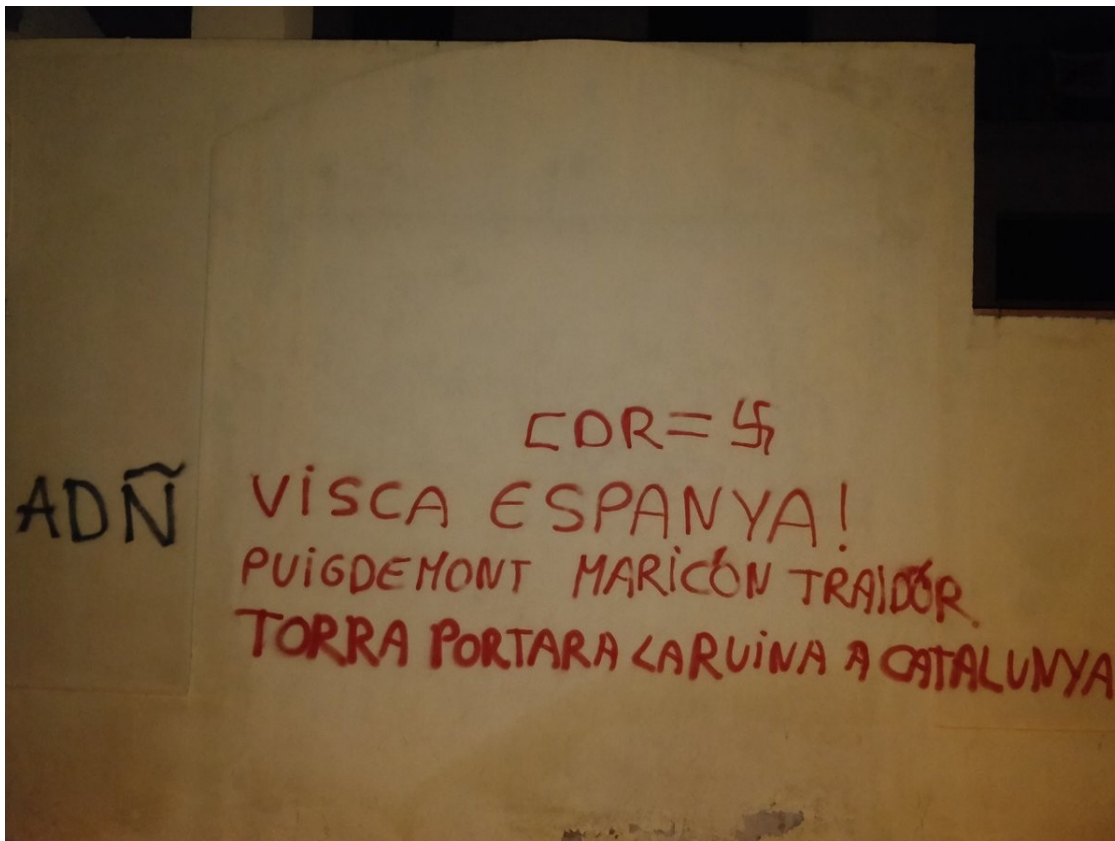 CDR = 卐
ADÑ
VISCA ESPANYA!
PUIGDEMONT MARICÓN TRAIDOR.
TORRA PORTARA LA RUINA A CATALUNYA